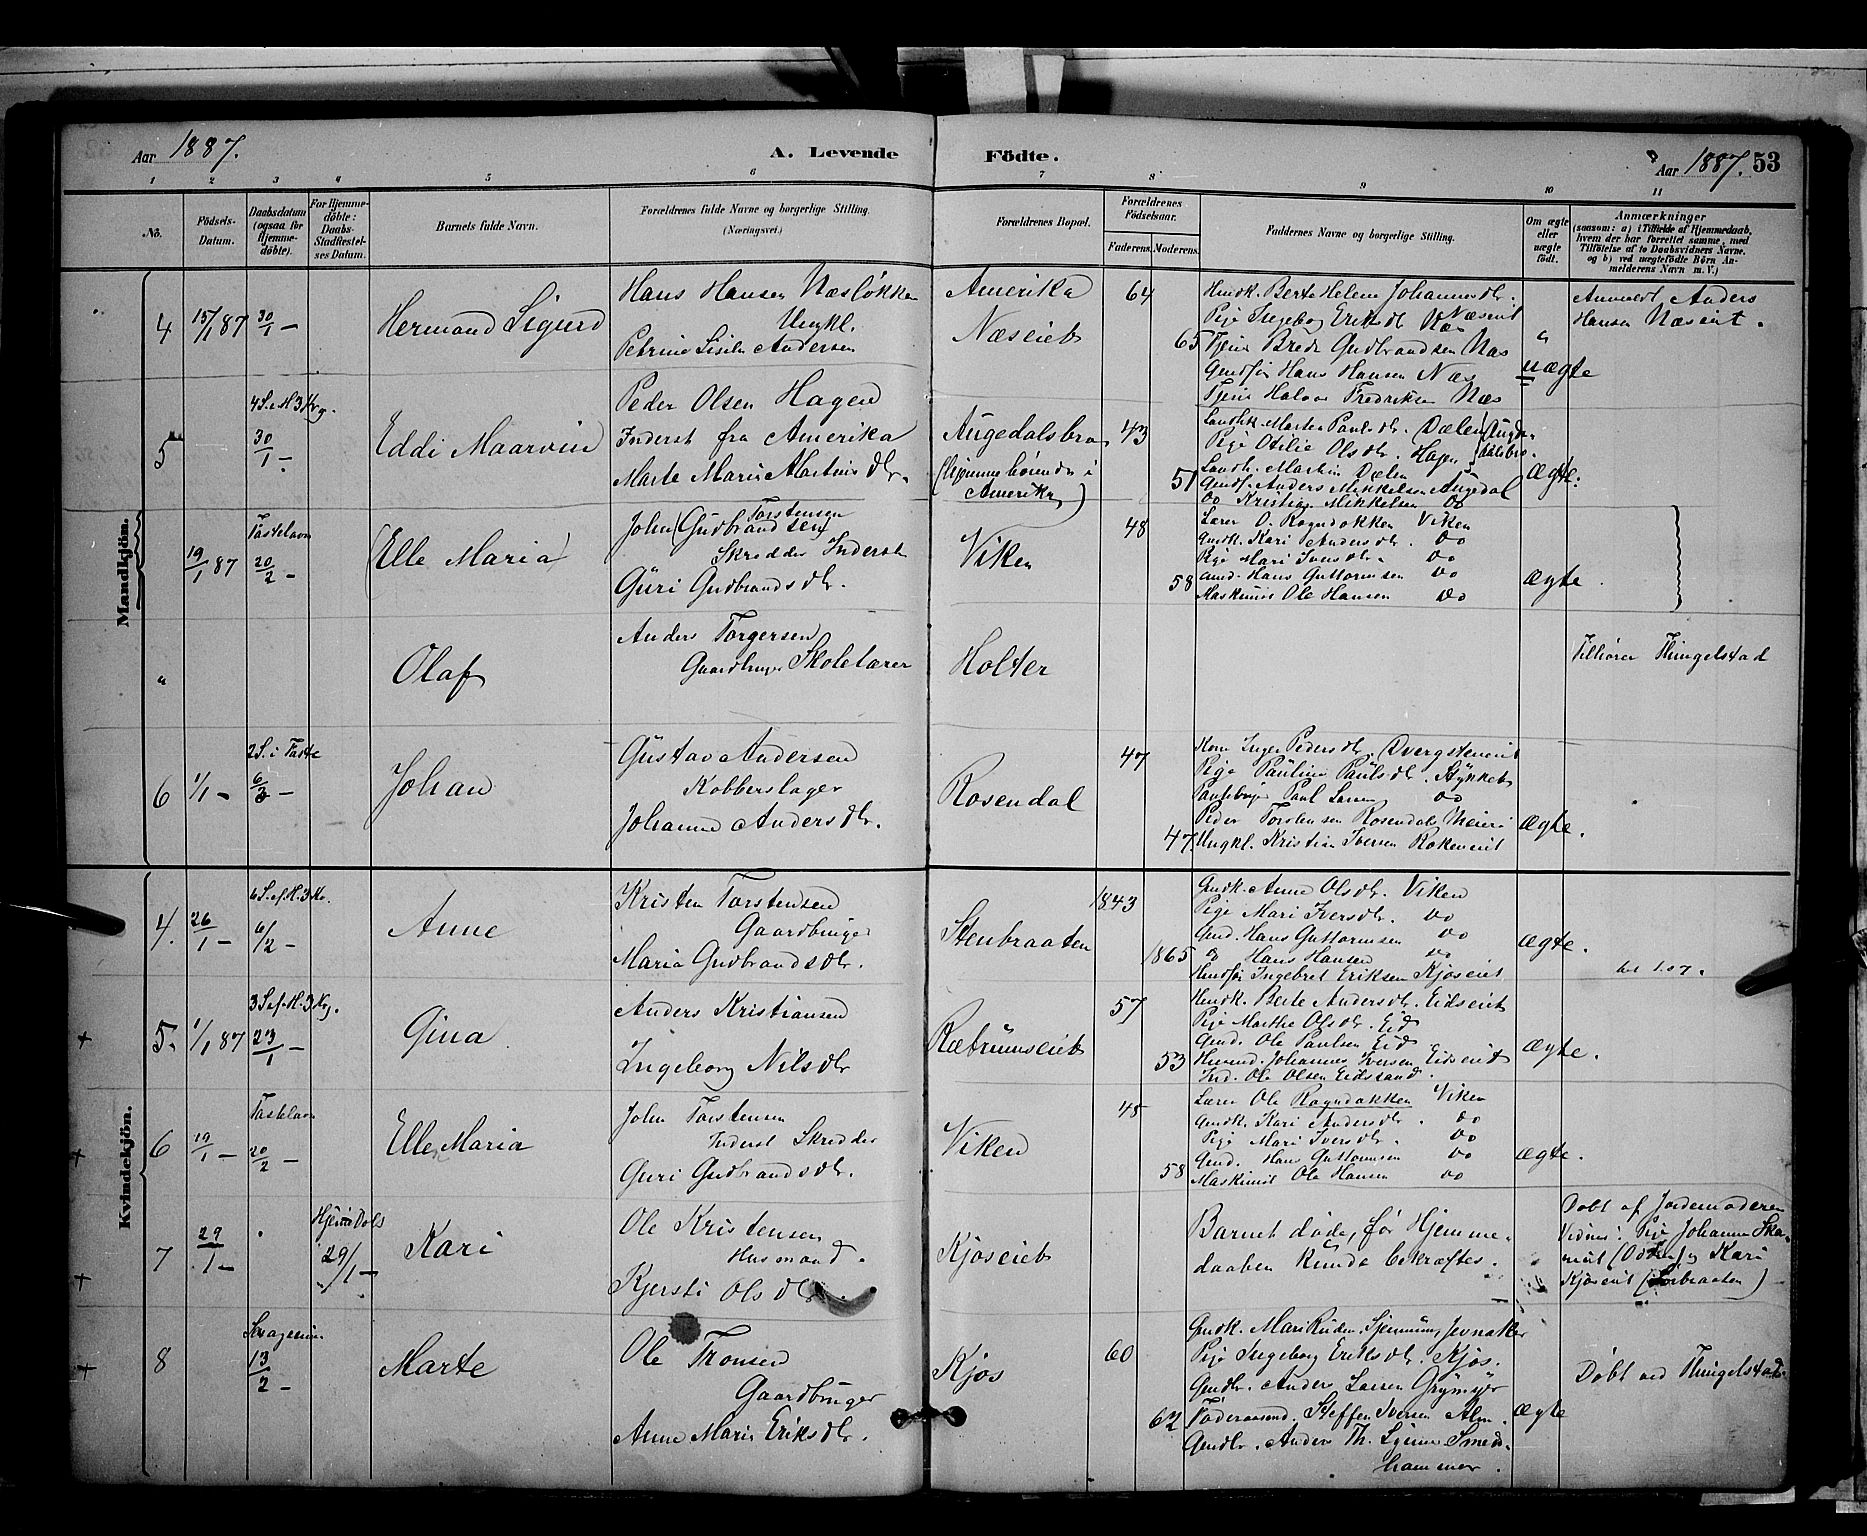 Aar 1887.
A. Levende Födte.
Aar 1887. 53
1 2 3 4 5 6 7 8 9 10 11
No.
Födsels-
Datum.
Daabsdatum
(ogsaa for
Hjemme-
döbte).
For Hjemme-
döbte:
Daabs-
Stadfæstel-
ses Datum.
Barnets fulde Navn.
Forældrenes fulde Navne og borgerlige Stilling.
(Næringsvei.)
Forældrenes Bopæl.
Forældrenes
Födselsaar.
Faderens. Moderens.
Faddernes Navne og borgerlige Stilling.
Om ægte
eller
uægte
født.
Anmærkninger
(saasom: a) i Tilfælde af Hjemmedaab,
hvem der har forrettet samme, med
Tilföielse af to Daabsvidners Navne,
og b) ved uægtefödte Börn An-
melderens Navn m. V.)
Mandkjön.
4 15/1 87 30/1 –
Hermand Sigurd
Hans Hansen Næsløkken
Ungkl.
Petrine Lisile Andersen
Amerika
Næseiet
64
65
Husk. Berte Helene Johannesdtr. Næseiet
Pige Ingeborg Eriksdtr Næs
Tjen. Brede Gudbrandsen Næs
Gaardf. Hans Hansen Næs
Tjen Halvor Fredriksen Næs
"
uægte
Anmeldt Anders
Hansen Næseiet.
5
4 S. e. H. 3 Kg.
30/1 –
Eddi Maarvin
Peder Olsen Hagen
Inderst fra Amerika
Marte Marie Martinsdtr.
Augedalsbra
(hjemmehörende i
Amerika)
43
51
Landhk. Marte Paulsdtr. Dælen
Pige Otilie Olsdtr. Hagen
Augedalsbro.
Landh. Martin Dælen
Gaardf. Anders Mikkelsen Augedal
Do Kristian Mikkelsen Do
Ægte.
19/1 87
Fastelavn
20/2 –
(Elle Maria)
John (Gudbrandsen) Torstensen
Skrædder Inderst
Guri Gudbrandsdtr.
Viken
48
58
Lærer O. Rogndokken Viken
Gaardk. Kari Andersdtr. Do
Pige Mari Iversdtr. Do
Gmd. Hans Guttormsen Do
Maskinist Ole Hansen Do
ægte.
"
Olaf
Anders Torgersen
Gaardbruger Skolelærer
Holter
Tilhører Thingelstad
6 1/1 –
2 S. i Faste
6/3 –
Johan
Gustav Andersen
Kobberslager
Johanne Andersdtr.
Rosendal
47
47.
Kone Inger Pedersdtr. Dvergsteneiet
Pige Pauline Paulsdtr. Stykket
Paul Larsen Do
Peder Torstensen Rosendal Meieri
Ungkl. Kristian Iversen Rokeneiet
Ægte.
Kvindekjön.
4. 26/1 –
6 S. e. H. 3 K.
6/2 –
Anne
Kristen Torstensen
Gaardbruger
Maria Gudbrandsdtr.
Stenbraaten
1843
1865
Gaardk. Anne Olsdtr. Viken
Pige Mari Iversdtr. Do
Gmd. Hans Guttormsen Do
Do Hans Hansen Do
Husfør Ingebret Eriksen Kjøseiet
ægte.
5. 1/1 87
3 S. e. H. 3 Kg.
23/1 –
Gina
Anders Kristiansen
Ingeborg Nilsdtr
Ræbrumseiet
57
53
Husk. Berte Andersdtr. Eidseiet
Pige Marthe Olsdtr. Eid
Gmd. Ole Paulsen Eid
Husmd. Johannes Iversen Eidseiet
Ind. Ole Olsen Eidssand.
ægte.
6 19/1 –
Fastelavn
20/2 –
Elle Maria
John Torstensen
Inderst Skrædder
Guri Gudbrandsdtr.
Viken
48
58
Lærer Ole Rogndokken Viken
Gaardk. Kari Andersdtr. Do
Pige Mari Iversdtr. Do
Gmd. Hans Guttormsen Do
Maskinist Ole Hansen Do
ægte.
7 29/1 –
Hjem Døbt
29/1 –
Kari
Ole Kristensen
Husmand.
Kjersti Olsdtr.
Kjøseiet
Barnet døde, før Hjemme-
daaben kunde bekræftes.
Døbt af Jordemoderen
Vidner: Pige Johanne
Kari
Kjøseiet
8
13/2 –
Marte
Ole Tronsen
Gaardbruger
Anne Marie Eriksdtr.
Kjøs
60
62
Gaardk. Mari Ruden, Jevnaker
Pige Ingeborg Eriksdtr. Kjøs.
Gaardbr. Anders Larsen Grymyr
Föderaadsmd. Steffen Iversen Alm.
Gaardbr. Anders Th. Lynne Smeds-
hammer.
ægte
Døbt ved Thingelstad.